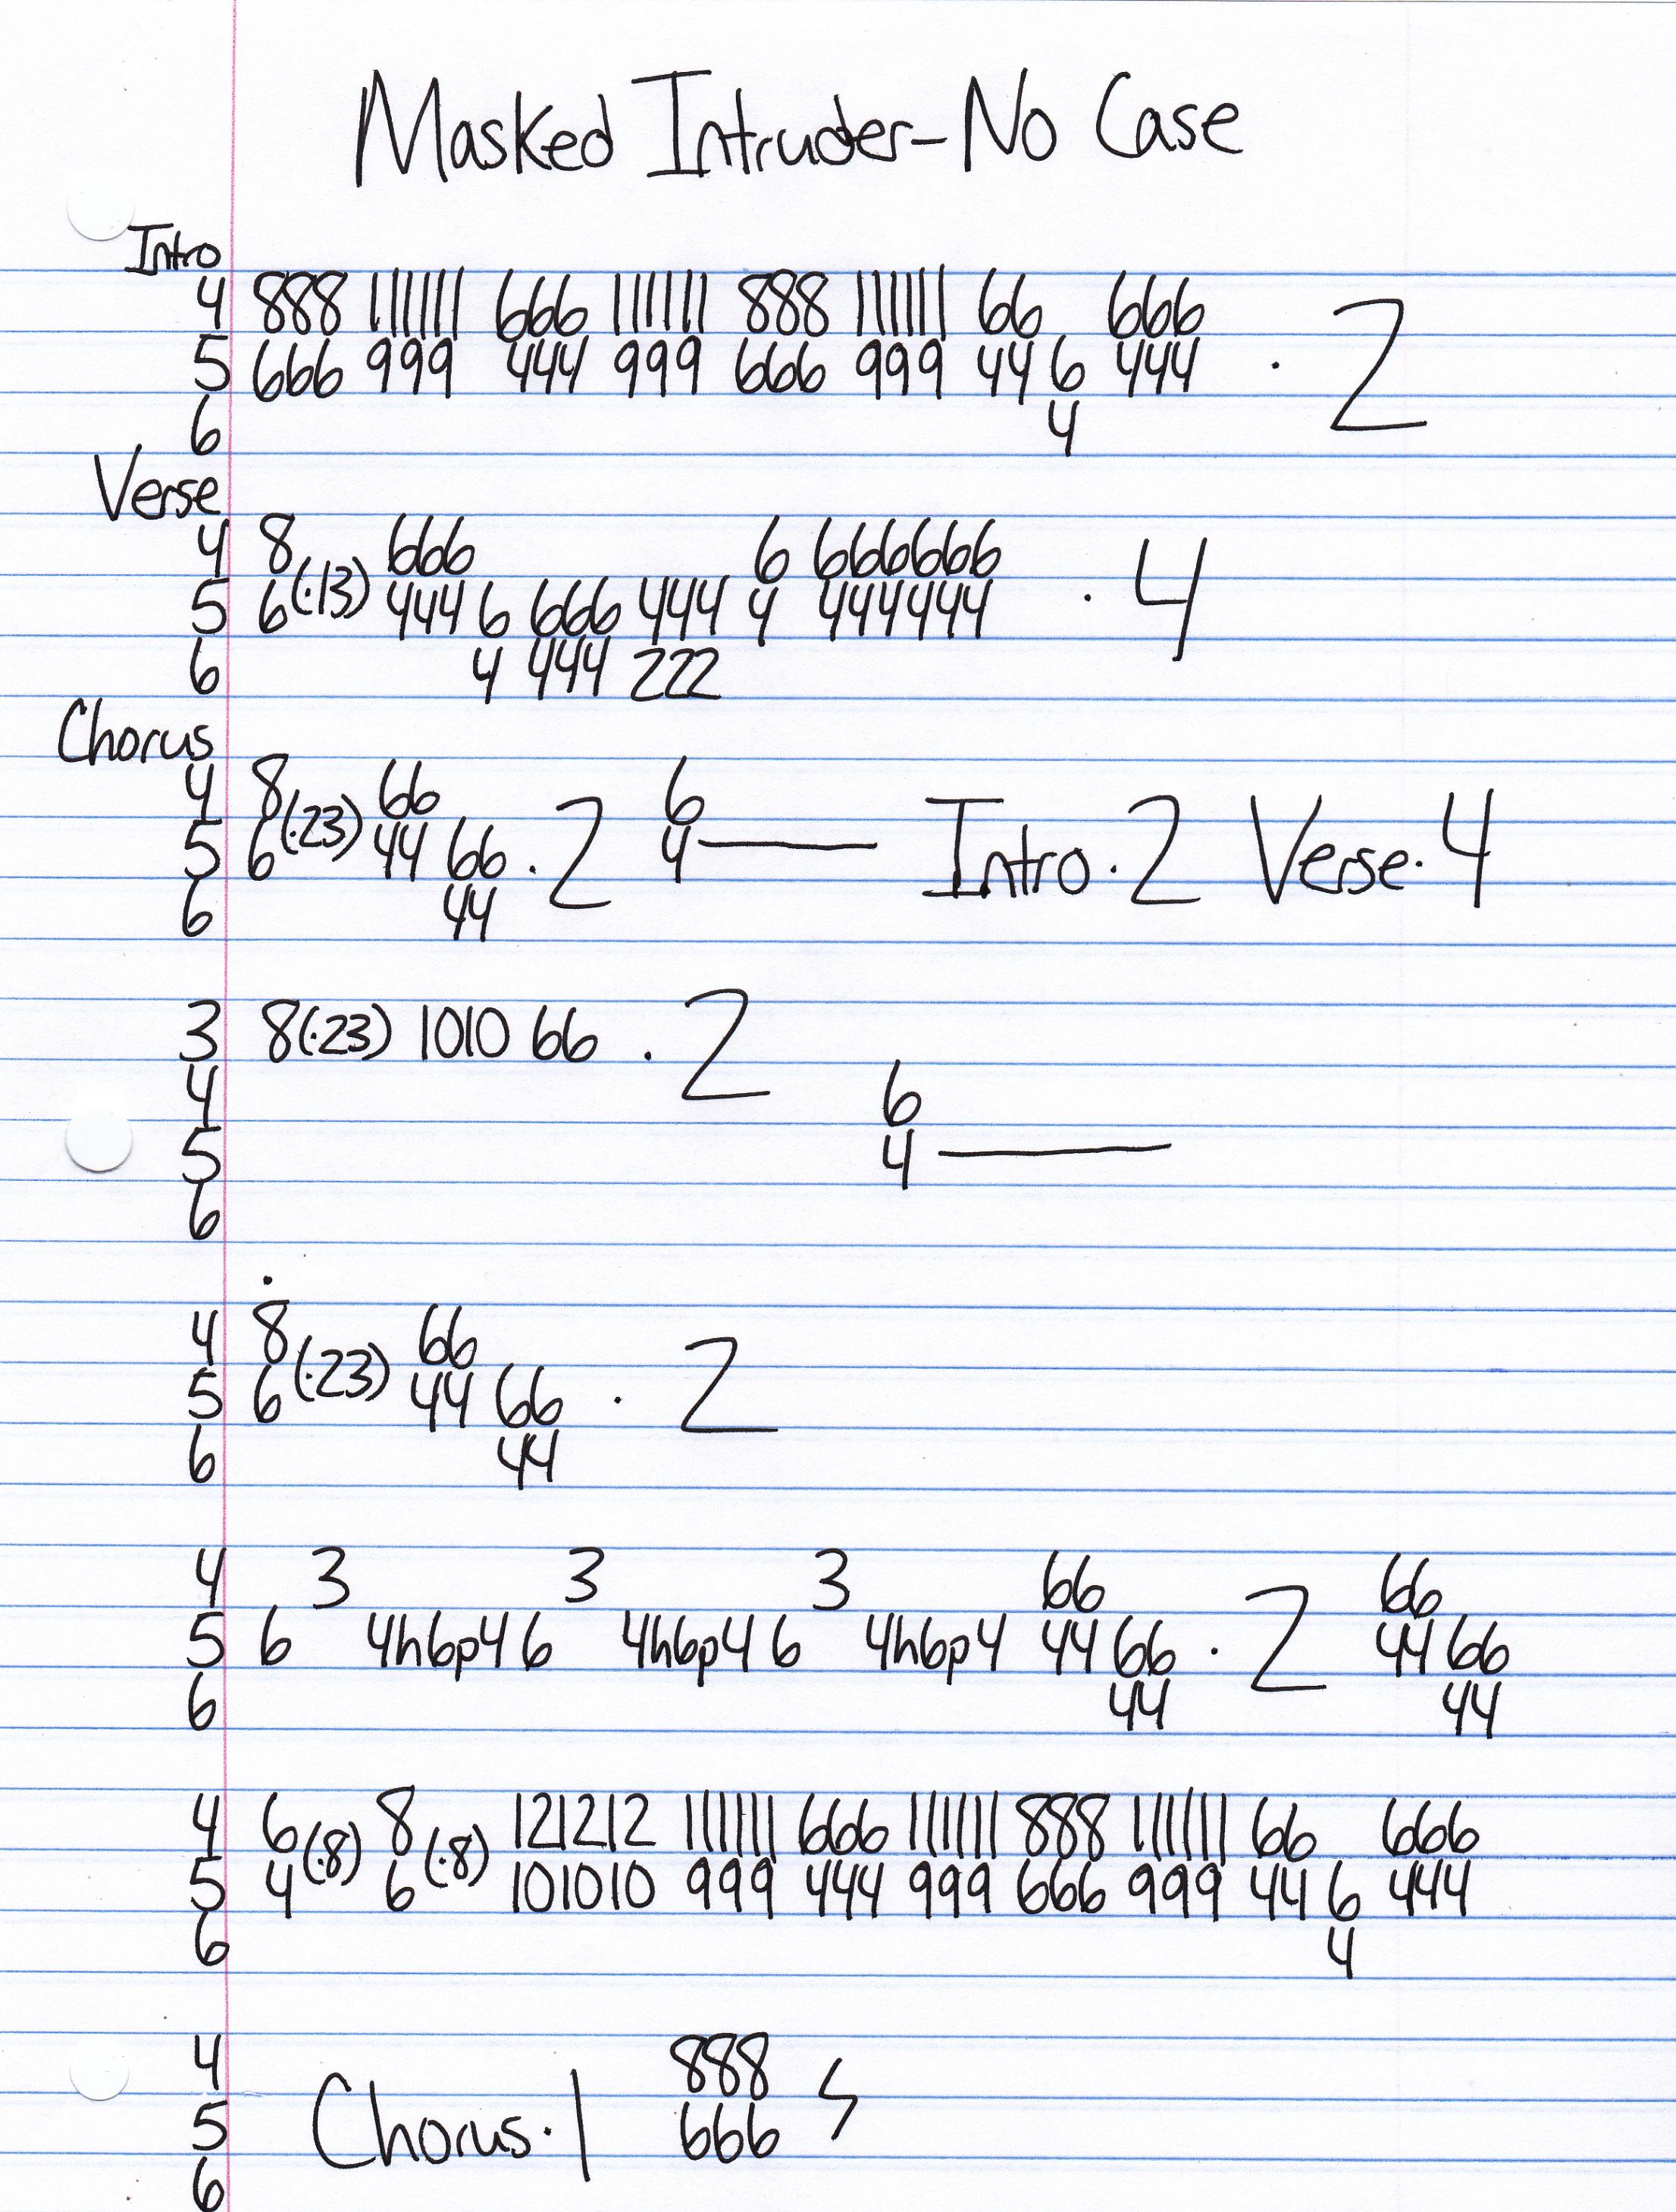 Masked Intruder-No Case
Intro
4 888 111111 666 111111 888 111111 66 666
5 666 999 444 999 666 999 44 6 444 · 2
6 4
Verse
4 8 666 6 666666
5 6(·13) 444 6 666 444 4 444444 · 4
6 4 444 222
Chorus
4 8 66 6
5 6(·23) 44 66 · 2 4— Intro·2 Verse·4
6 44
3 8(·23) 1010 66 · 2
4 6
5 4—
6
4 8 66
5 6(·23) 44 66 · 2
6 44
4 3 3 3 66 66
5 6 4h6p4 6 4h6p4 6 4h6p4 44 66 · 2 44 66
6 44 44
4 6(·8) 8(·8) 121212 111111 666 111111 888 111111 66 666
5 4 6 101010 999 444 999 666 999 44 6 444
6 4
4 888
5 Chorus·1 666
6